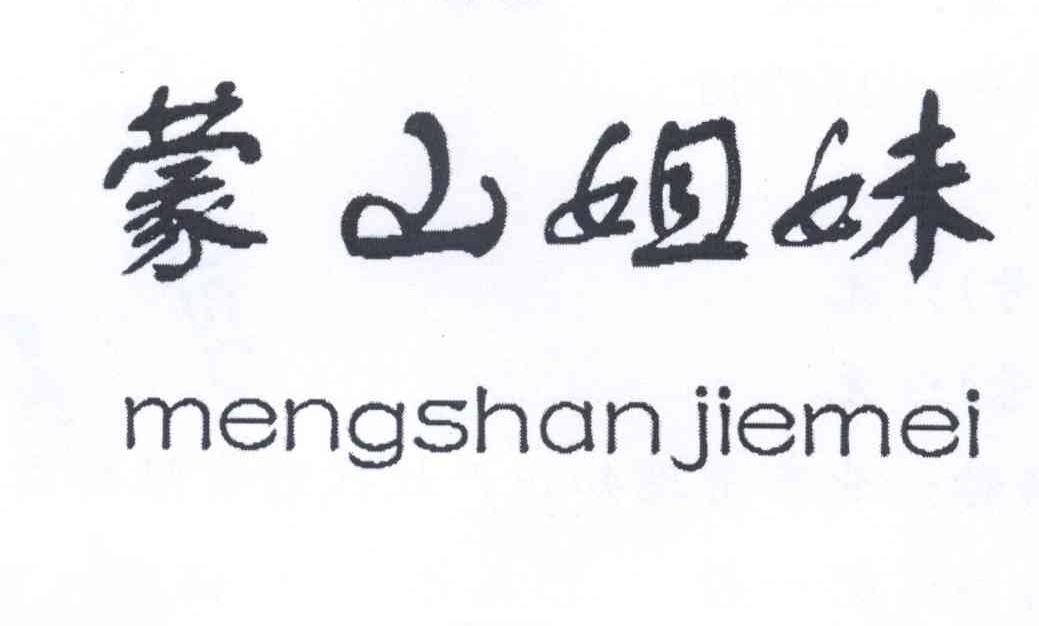 蒙山姐妹
mengshan jiemei